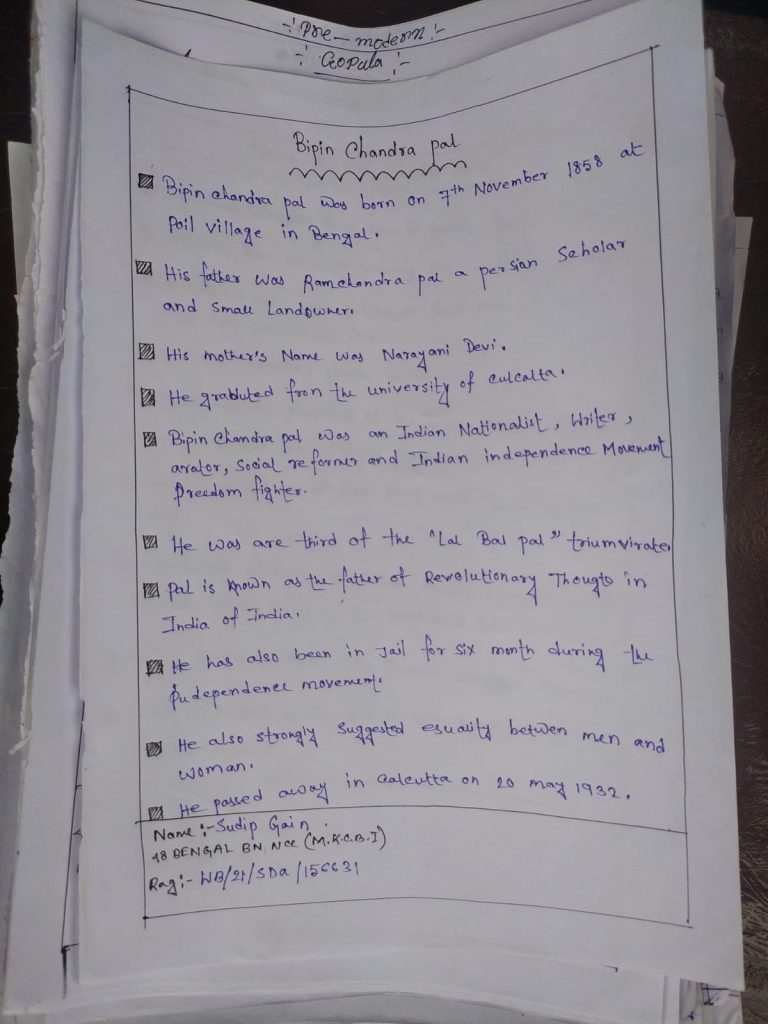 -:- Pre - modern -:-
-:- Gopala -:-
Bipin Chandra pal
Bipin chandra pal was born on 7th November 1858 at
Poil village in Bengal.
His father was Ramchandra pal a persian Scholar
and small Landowner.
His mother's Name was Narayani Devi.
He grabuted fron the university of culcatta.
Bipin Chandra pal was an Indian Nationalist, Writer,
arator, social reformer and Indian independence Movement
freedom fighter.
He was are third of the "Lal Bal pal" triumvirate.
pal is known as the father of Revolutionary Thougts in
India of India.
He has also been in Jail for six month during the
Independence movement.
He also strongly suggested esuality betwen men and
woman.
He passed away in calcutta on 20 may 1932.
Name :- Sudip Gain.
48 BENGAL BN Ncc (M.K.C.B.I)
Rag:- WB/21/SDa/156631